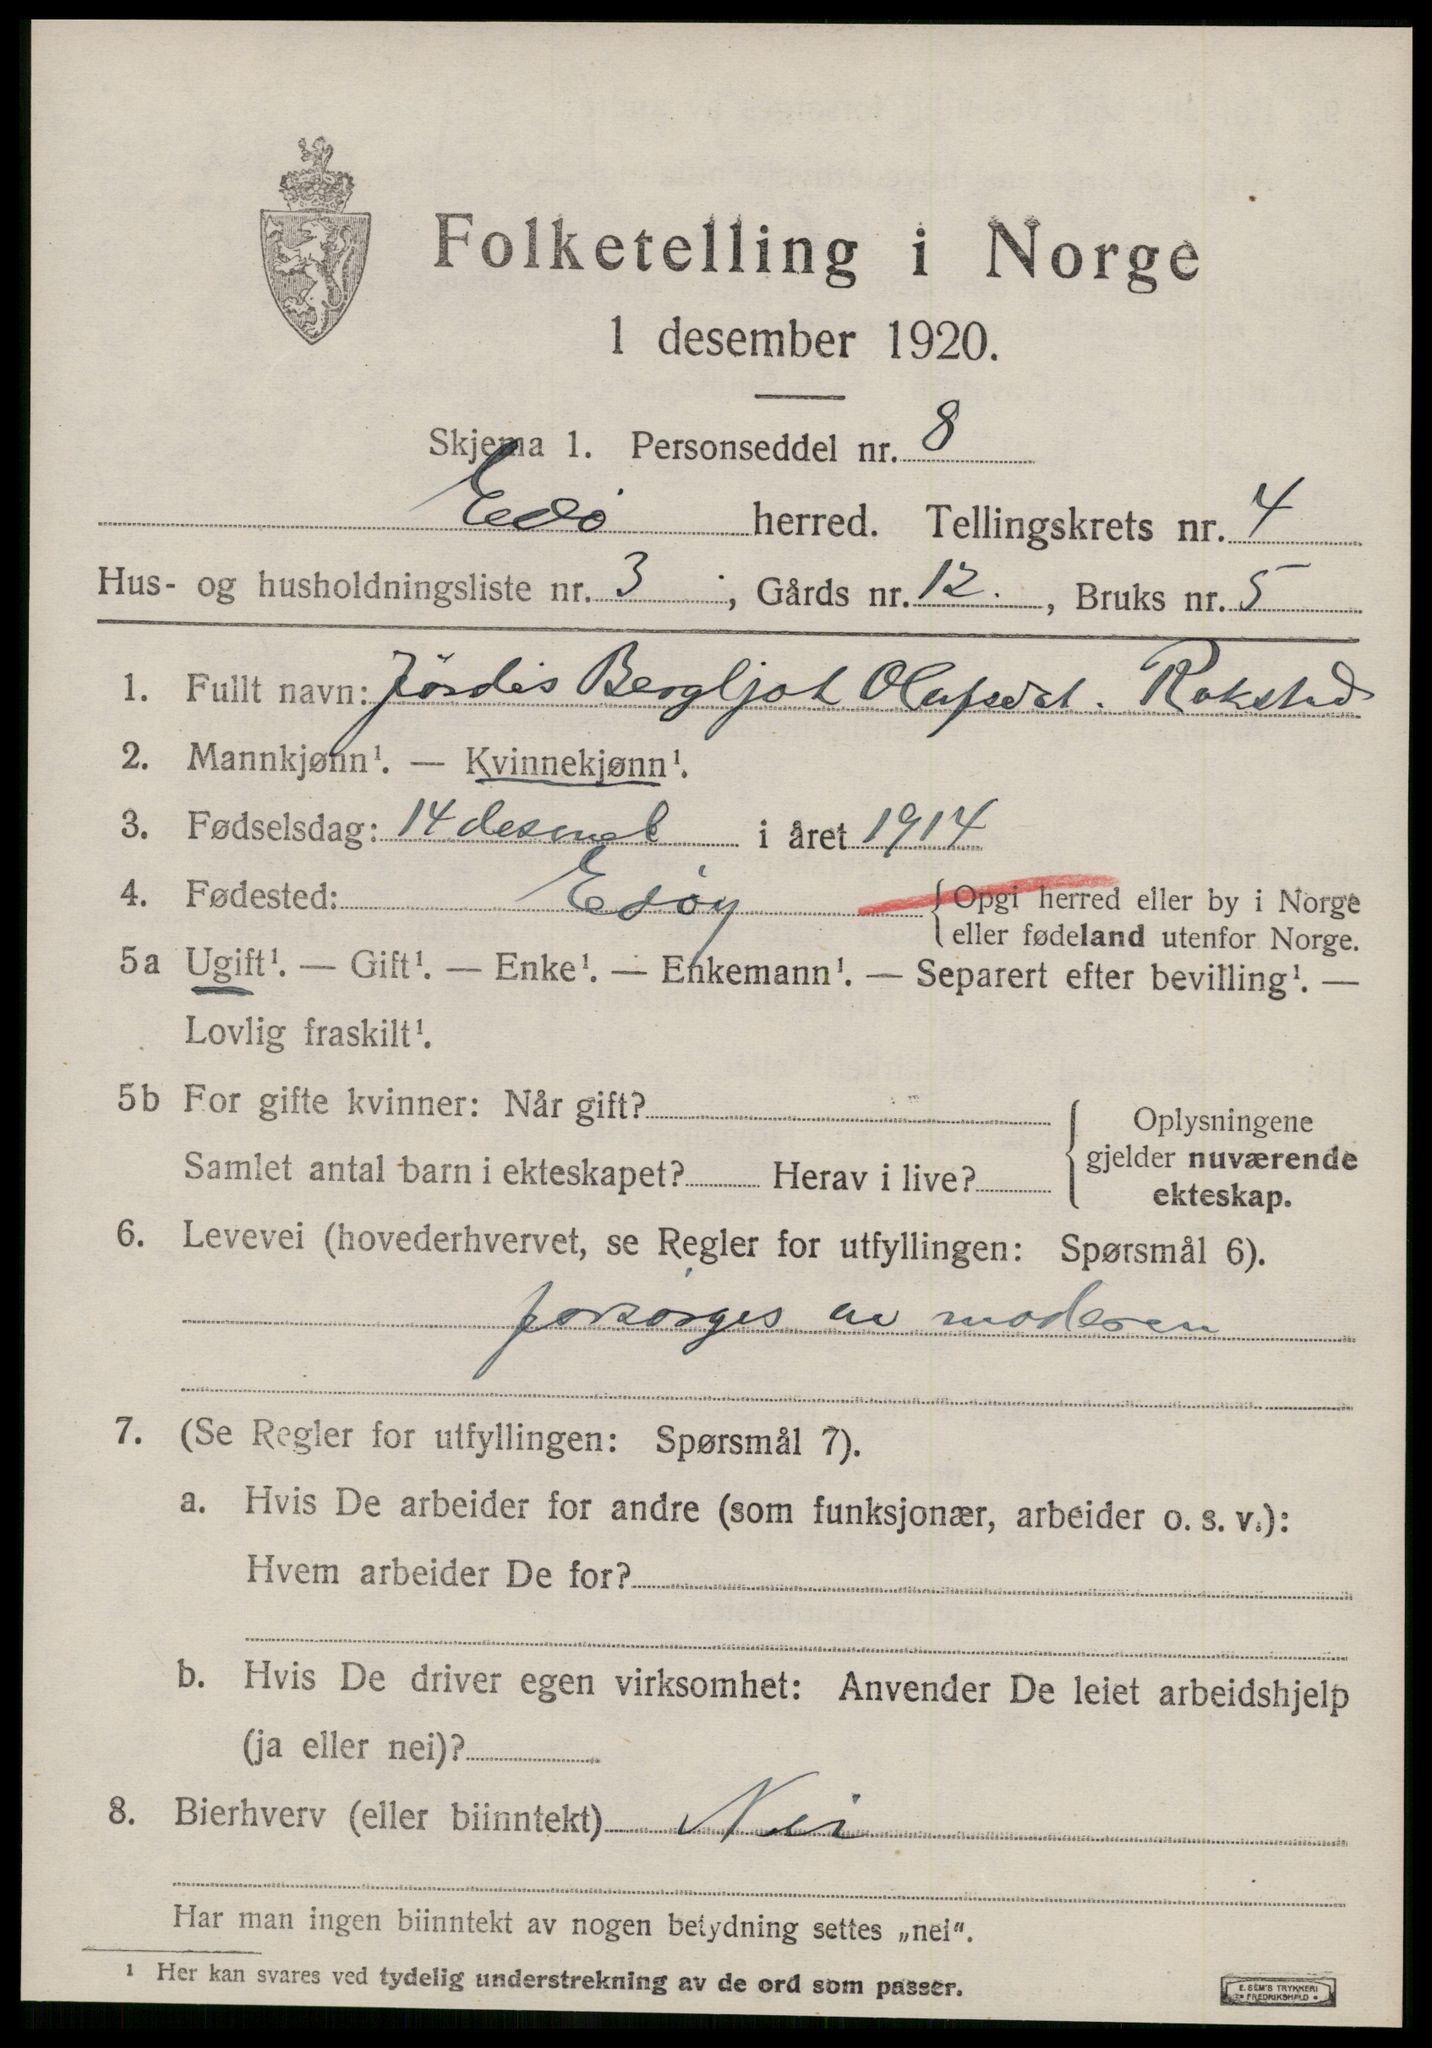 Folketelling i Norge
1 desember 1920.
Skjema 1. Personseddel nr. 8
Edö herred. Tellingskrets nr. 4
Hus- og husholdningsliste nr. 3 ; Gårds nr. 12. , Bruks nr. 5
1. Fullt navn: Jördis Bergljot Olafsdat. Rokstad
2. Mannkjønn¹. — Kvinnekjønn¹.
3. Fødselsdag: 14 desemb i året 1914
4. Fødested: Edöy { Opgi herred eller by i Norge
eller fødeland utenfor Norge.
5a Ugift¹. — Gift¹. — Enke¹. — Enkemann¹. — Separert efter bevilling¹. —
Lovlig fraskilt¹.
5b For gifte kvinner: Når gift? { Oplysningene
gjelder nuværende
Samlet antal barn i ekteskapet? Herav i live? ekteskap.
6. Levevei (hovederhvervet, se Regler for utfyllingen: Spørsmål 6).
forsörges av moderen
7. (Se Regler for utfyllingen: Spørsmål 7).
a. Hvis De arbeider for andre (som funksjonær, arbeider o. s. v.):
Hvem arbeider De for?
b. Hvis De driver egen virksomhet: Anvender De leiet arbeidshjelp
(ja eller nei)?
8. Bierhverv (eller biinntekt) Nei
Har man ingen biinntekt av nogen betydning settes „nei“.
¹ Her kan svares ved tydelig understrekning av de ord som passer.
E. SEM'S TRYKKERI
FREDRIKSHALD